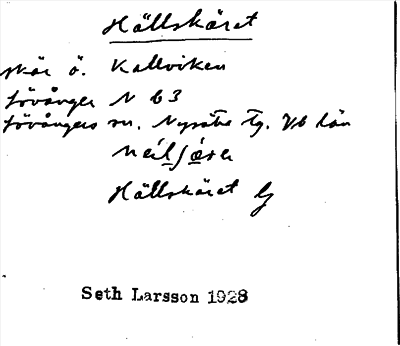 Hällskäret
skär ö. Kallviken
Lövånger N 63
Lövångers sn. Nysätra tg. Vb län
Hällskäret
Seth Larsson 1928